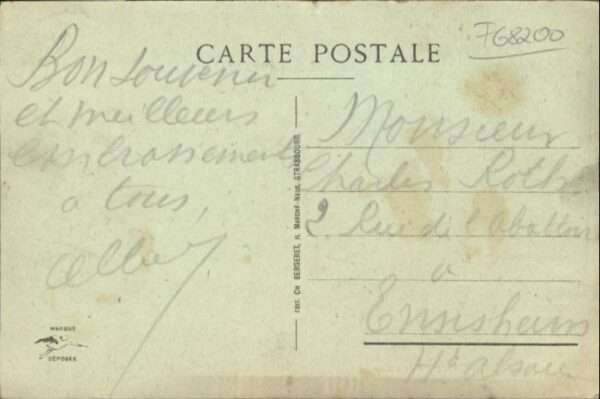 F68200
CARTE POSTALE
Bon souvenir
et meilleurs
embrassements
à tous,
Monsieur
Charles Roth
2 Rue de l'Abattoir
à
Ensisheim
Ht Alsace
EDIT. CH BERGERET, MARCHÉ-NEUF, STRASBOURG
MARQUE
DÉPOSÉE